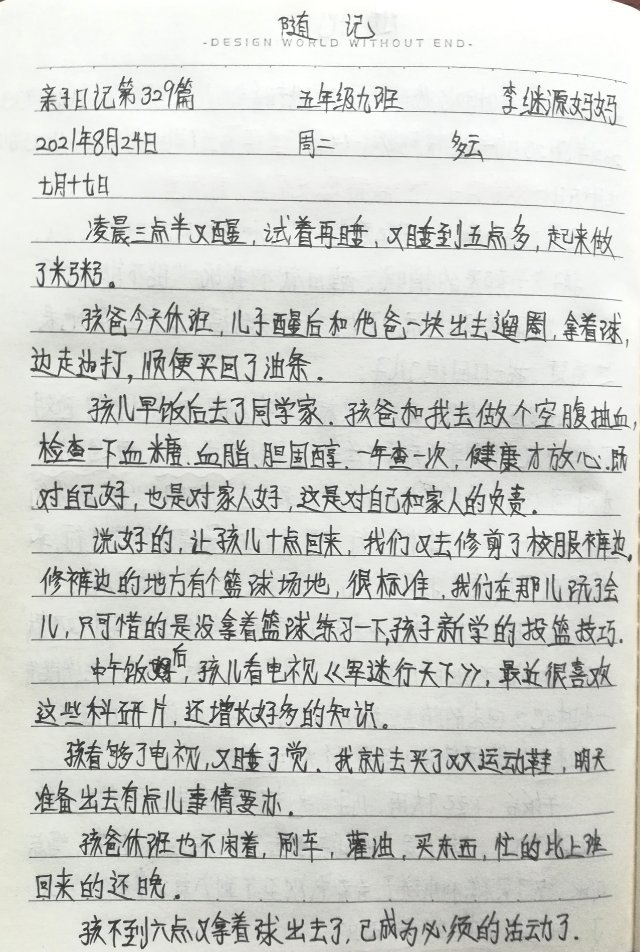 随记
-DESIGN WORLD WITHOUT END-
亲子日记第329篇 五年级九班 李继源妈妈
2021年8月24日 周二 多云
七月十七日
凌晨三点半又醒，试着再睡，又睡到五点多，起来做
了米粥。
孩爸今天休班，儿子醒后和他爸一块出去遛圈，拿着球，
边走边打，顺便买回了油条。
孩儿早饭后去了同学家，孩爸和我去做个空腹抽血，
检查一下血糖、血脂、胆固醇，一年查一次，健康才放心.既
对自己好，也是对家人好，这是对自己和家人的负责。
说好的，让孩儿十点回来，我们又去修剪了校服裤边。
修裤边的地方有个篮球场地，很标准，我们在那儿玩了会
儿，只可惜的是没拿着篮球练习一下,孩子新学的投篮技巧.
中午饭后，孩儿看电视《军迷行天下》，最近很喜欢
这些科研片，还增长好多的知识。
孩看够了电视，又睡了觉，我就去买了双运动鞋，明天
准备出去有点儿事情要办。
孩爸休班也不闲着，刷车，灌油，买东西，忙的比上班
回来的还晚。
孩不到六点又拿着球出去了，已成为必须的活动了.